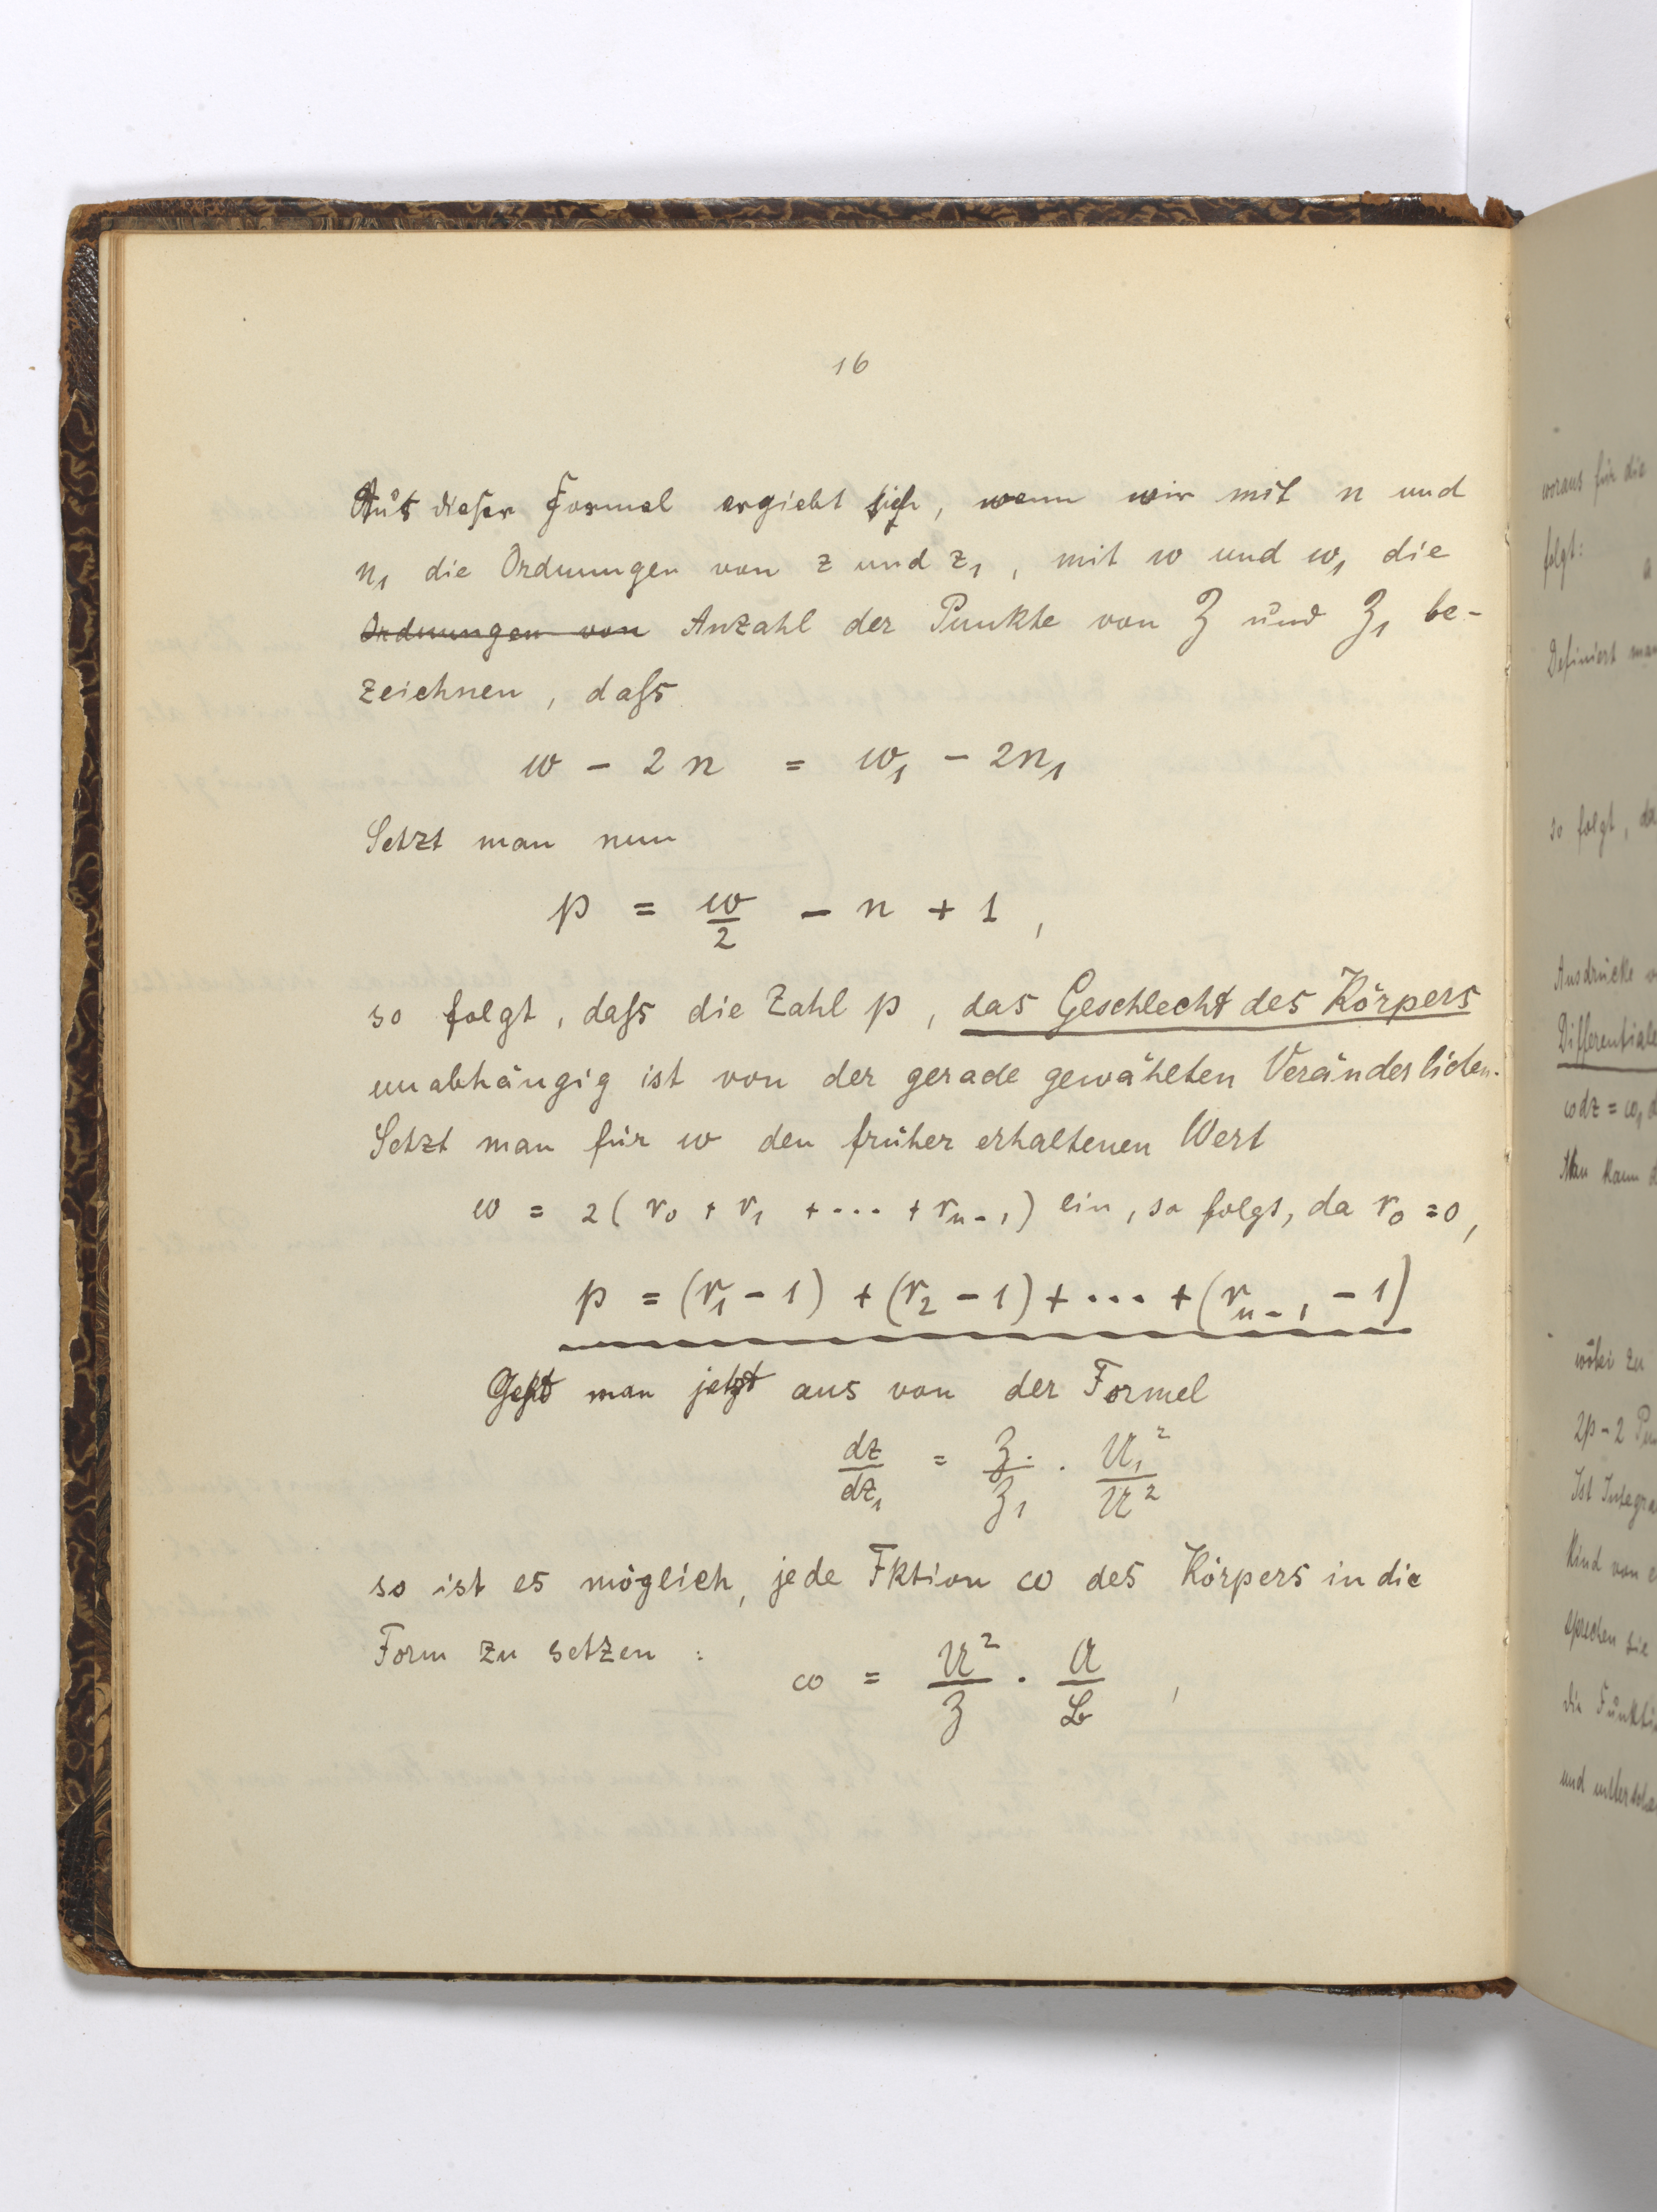 16
Aus dieser Formel ergiebt sich, wenn wir mit n und
n₁ die Ordnungen von z und z₁, mit w und w₁ die
Ordnungen von Anzahl der Punkte von ℨ und ℨ₁ be-
zeichnen, daſs
w - 2n = w₁ - 2n₁
Setzt man nun
p = w/2 - n + 1,
so folgt, daſs die Zahl p, das Geschlecht des Körpers
unabhängig ist von der gerade gewählten Veränderlichen.
Setzt man für w den früher erhaltenen Wert
w = 2(r₀ + r₁ + ... + rₙ₋₁) ein, so folgt, da r₀ = 0,
p = (r₁ - 1) + (r₂ - 1) + ... + (rₙ₋₁ - 1)
Geht man jetzt aus von der Formel
dz/dz₁ = ℨ/ℨ₁ · 𝔘₁²/𝔘²
so ist es möglich, jede Fktion ω des Körpers in die
Form zu setzen :
ω = 𝔘²/ℨ · 𝔄/𝔅 ,
woraus für die
folgt:
Definiert man
so folgt, da
Ausdrücke
Differentiale
ωdz = ω₁d
Man kann
wobei zu
2p - 2
Ist
kind von
sprechen sie
die
und